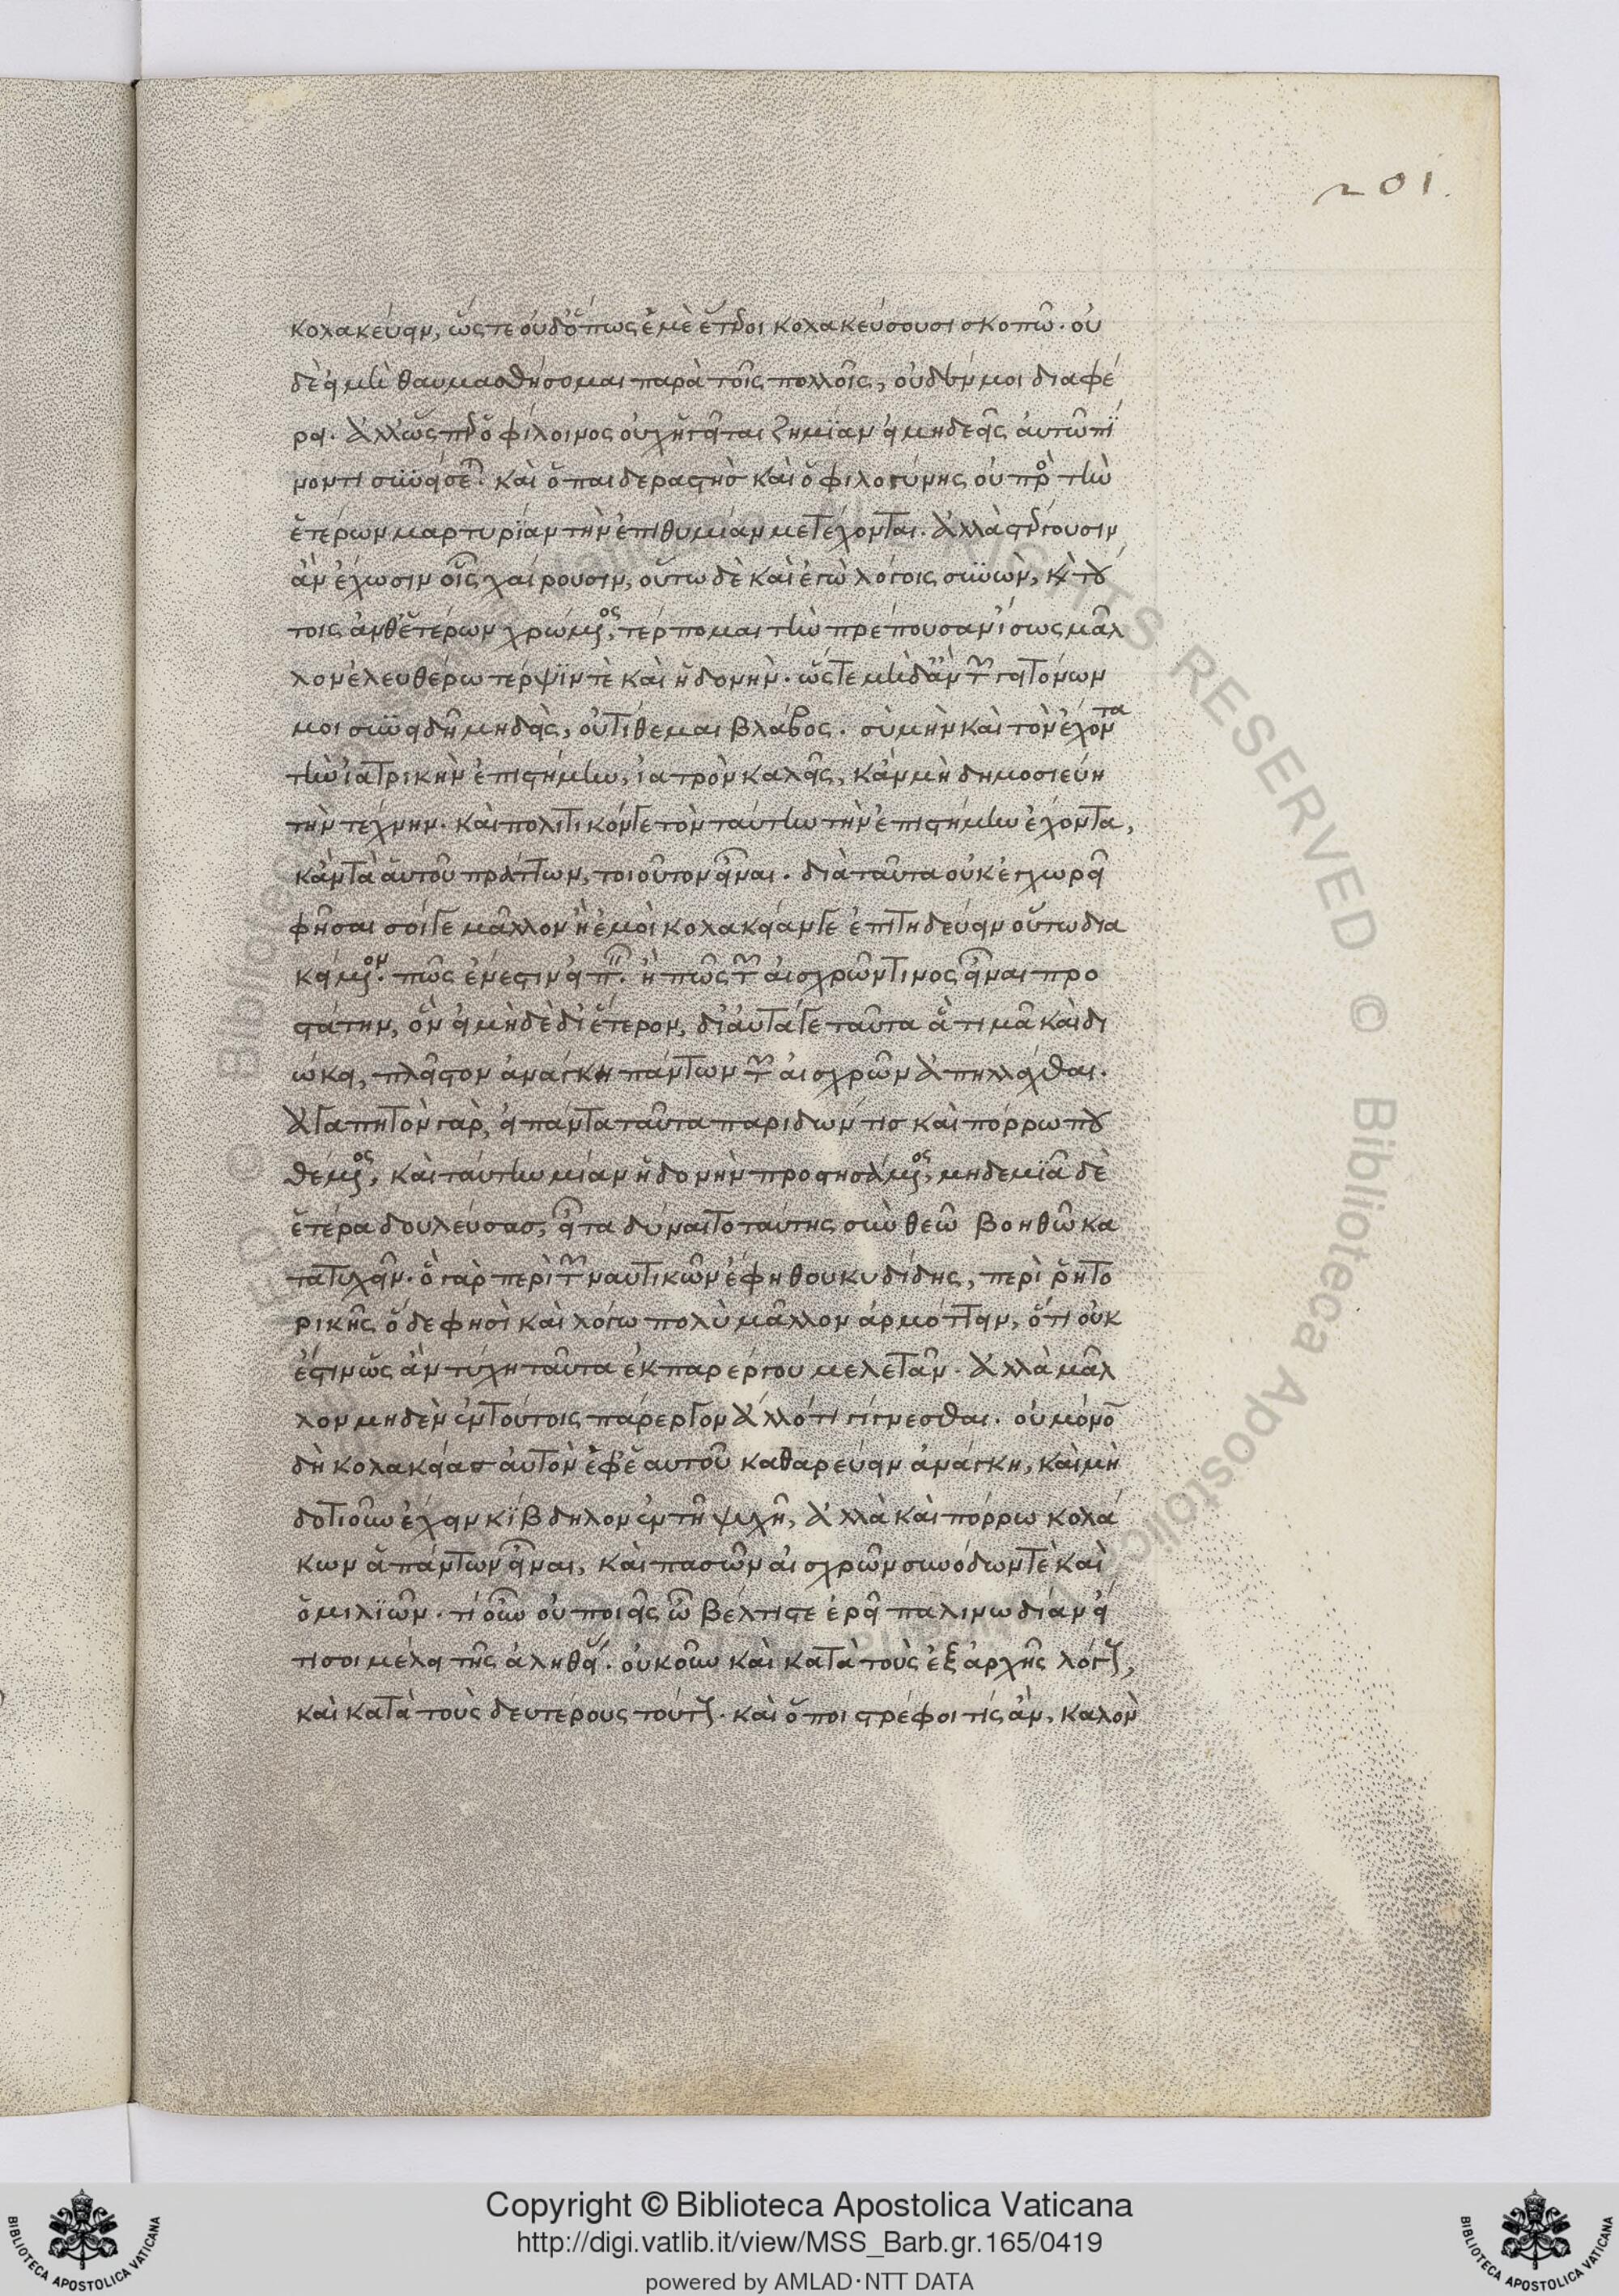 201.
κολακεύειν, ὥστε οὐδ' ὅπως ἐμὲ ἕτεροι κολακεύσουσι σκοπῶ. οὐ
δὲ εἰ μὴ θαυμασθήσομαι παρὰ τοῖς πολλοῖς, οὐδέν μοι διαφέ
ρει. ἀλλ' ὥσπερ ὁ φίλοινος οὐχ ἡγεῖται ζημίαν εἰ μηδεὶς αὐτῷ πί
νοντι σύνεισι. καὶ ὁ παιδεραστὴς καὶ ὁ φιλογύνης οὐ πρὸς τὴν
ἑτέρων μαρτυρίαν τὴν ἐπιθυμίαν μετέχονται. ἀλλὰ στέργουσιν
ἂν ἔχωσιν οἷς χαίρουσιν, οὕτω δὲ καὶ ἐγὼ λόγοις συνών, καὶ τού
τοις ἀνθ' ἑτέρων χρώμενος, τέρπομαι τὴν πρέπουσαν ἴσως μᾶλ
λον ἐλευθέρῳ τέρψιν τὲ καὶ ἡδονήν. ὥστε μηδ' ἂν τῶν γειτόνων
μοι συνειδῇ μηδεὶς, οὐ τίθεμαι βλάβος. σὺ μὴν καὶ τὸν ἔχοντα
τὴν ἰατρικὴν ἐπιστήμην, ἰατρὸν καλεῖς, κἂν μὴ δημοσιεύῃ
τὴν τέχνην. καὶ πολιτικόν γε τὸν ταύτην τὴν ἐπιστήμην ἔχοντα,
κἂν τὰ αὑτοῦ πράττων, τοιοῦτον εἶναι. διὰ ταῦτα οὐκ ἐγχωρεῖ
φῆσαι σοί γε μᾶλλον ἢ ἐμοὶ κολακείαν γε ἐπιτηδεύειν οὕτω δια
κείμενον. πῶς ἔνεστιν εἰπεῖν. ἢ πῶς τῶν αἰσχρῶν τινος εἶναι προ
στάτην, ὃν εἰ μὴ δὲ δι' ἕτερον, δι' αὐτά γε ταῦτα ἃ τιμᾷ καὶ δι
ώκει, πλεῖστον ἀνάγκη πάντων τῶν αἰσχρῶν ἀπηλλάχθαι.
ἀγαπητὸν γὰρ, εἰ πάντα ταῦτα παριδών τις καὶ πόρρω που
θέμενος, καὶ ταύτην μίαν ἡδονὴν προστησάμενος, μηδεμιᾷ δὲ
ἑτέρᾳ δουλεύσας, εἶτα δύναιτο ταύτης σὺν θεῷ βοηθῷ κα
τατυχεῖν. ὃ γὰρ περὶ τῶν ναυτικῶν ἔφη θουκυδίδης, περὶ ῥητο
ρικῆς ὅδε φησὶ καὶ λόγῳ πολὺ μᾶλλον ἁρμόττειν, ὅτι οὐκ
ἔστιν ὡς ἂν τύχῃ ταῦτα ἐκ παρέργου μελετᾶν. ἀλλὰ μᾶλ
λον μηδὲν ἐν τούτοις πάρεργον ἄλλό τι γίγνεσθαι. οὐ μόνον
δὴ κολακείας αὐτὸν ἐφ' ἑαυτοῦ καθαρεύειν ἀνάγκη, καὶ μὴ
δοτιοῦν ἔχειν κίβδηλον ἐν τῇ ψυχῇ, ἀλλὰ καὶ πόρρω κολά
κων ἁπάντων εἶναι, καὶ πασῶν αἰσχρῶν συνόδων τὲ καὶ
ὁμιλιῶν. τί οὖν οὐ ποιεῖς ὦ βέλτιστε ἱερᾷ παλινῳδίαν εἴ
τι σοι μέλει τῆς ἀληθείας. οὐκοῦν καὶ κατὰ τοὺς ἐξ ἀρχῆς λόγους,
καὶ κατὰ τοὺς δευτέρους τούτους. καὶ ὅποι στρέφοι τίς ἂν, καλὸν
Copyright © Biblioteca Apostolica Vaticana
http://digi.vatlib.it/view/MSS_Barb.gr.165/0419
powered by AMLAD·NTT DATA